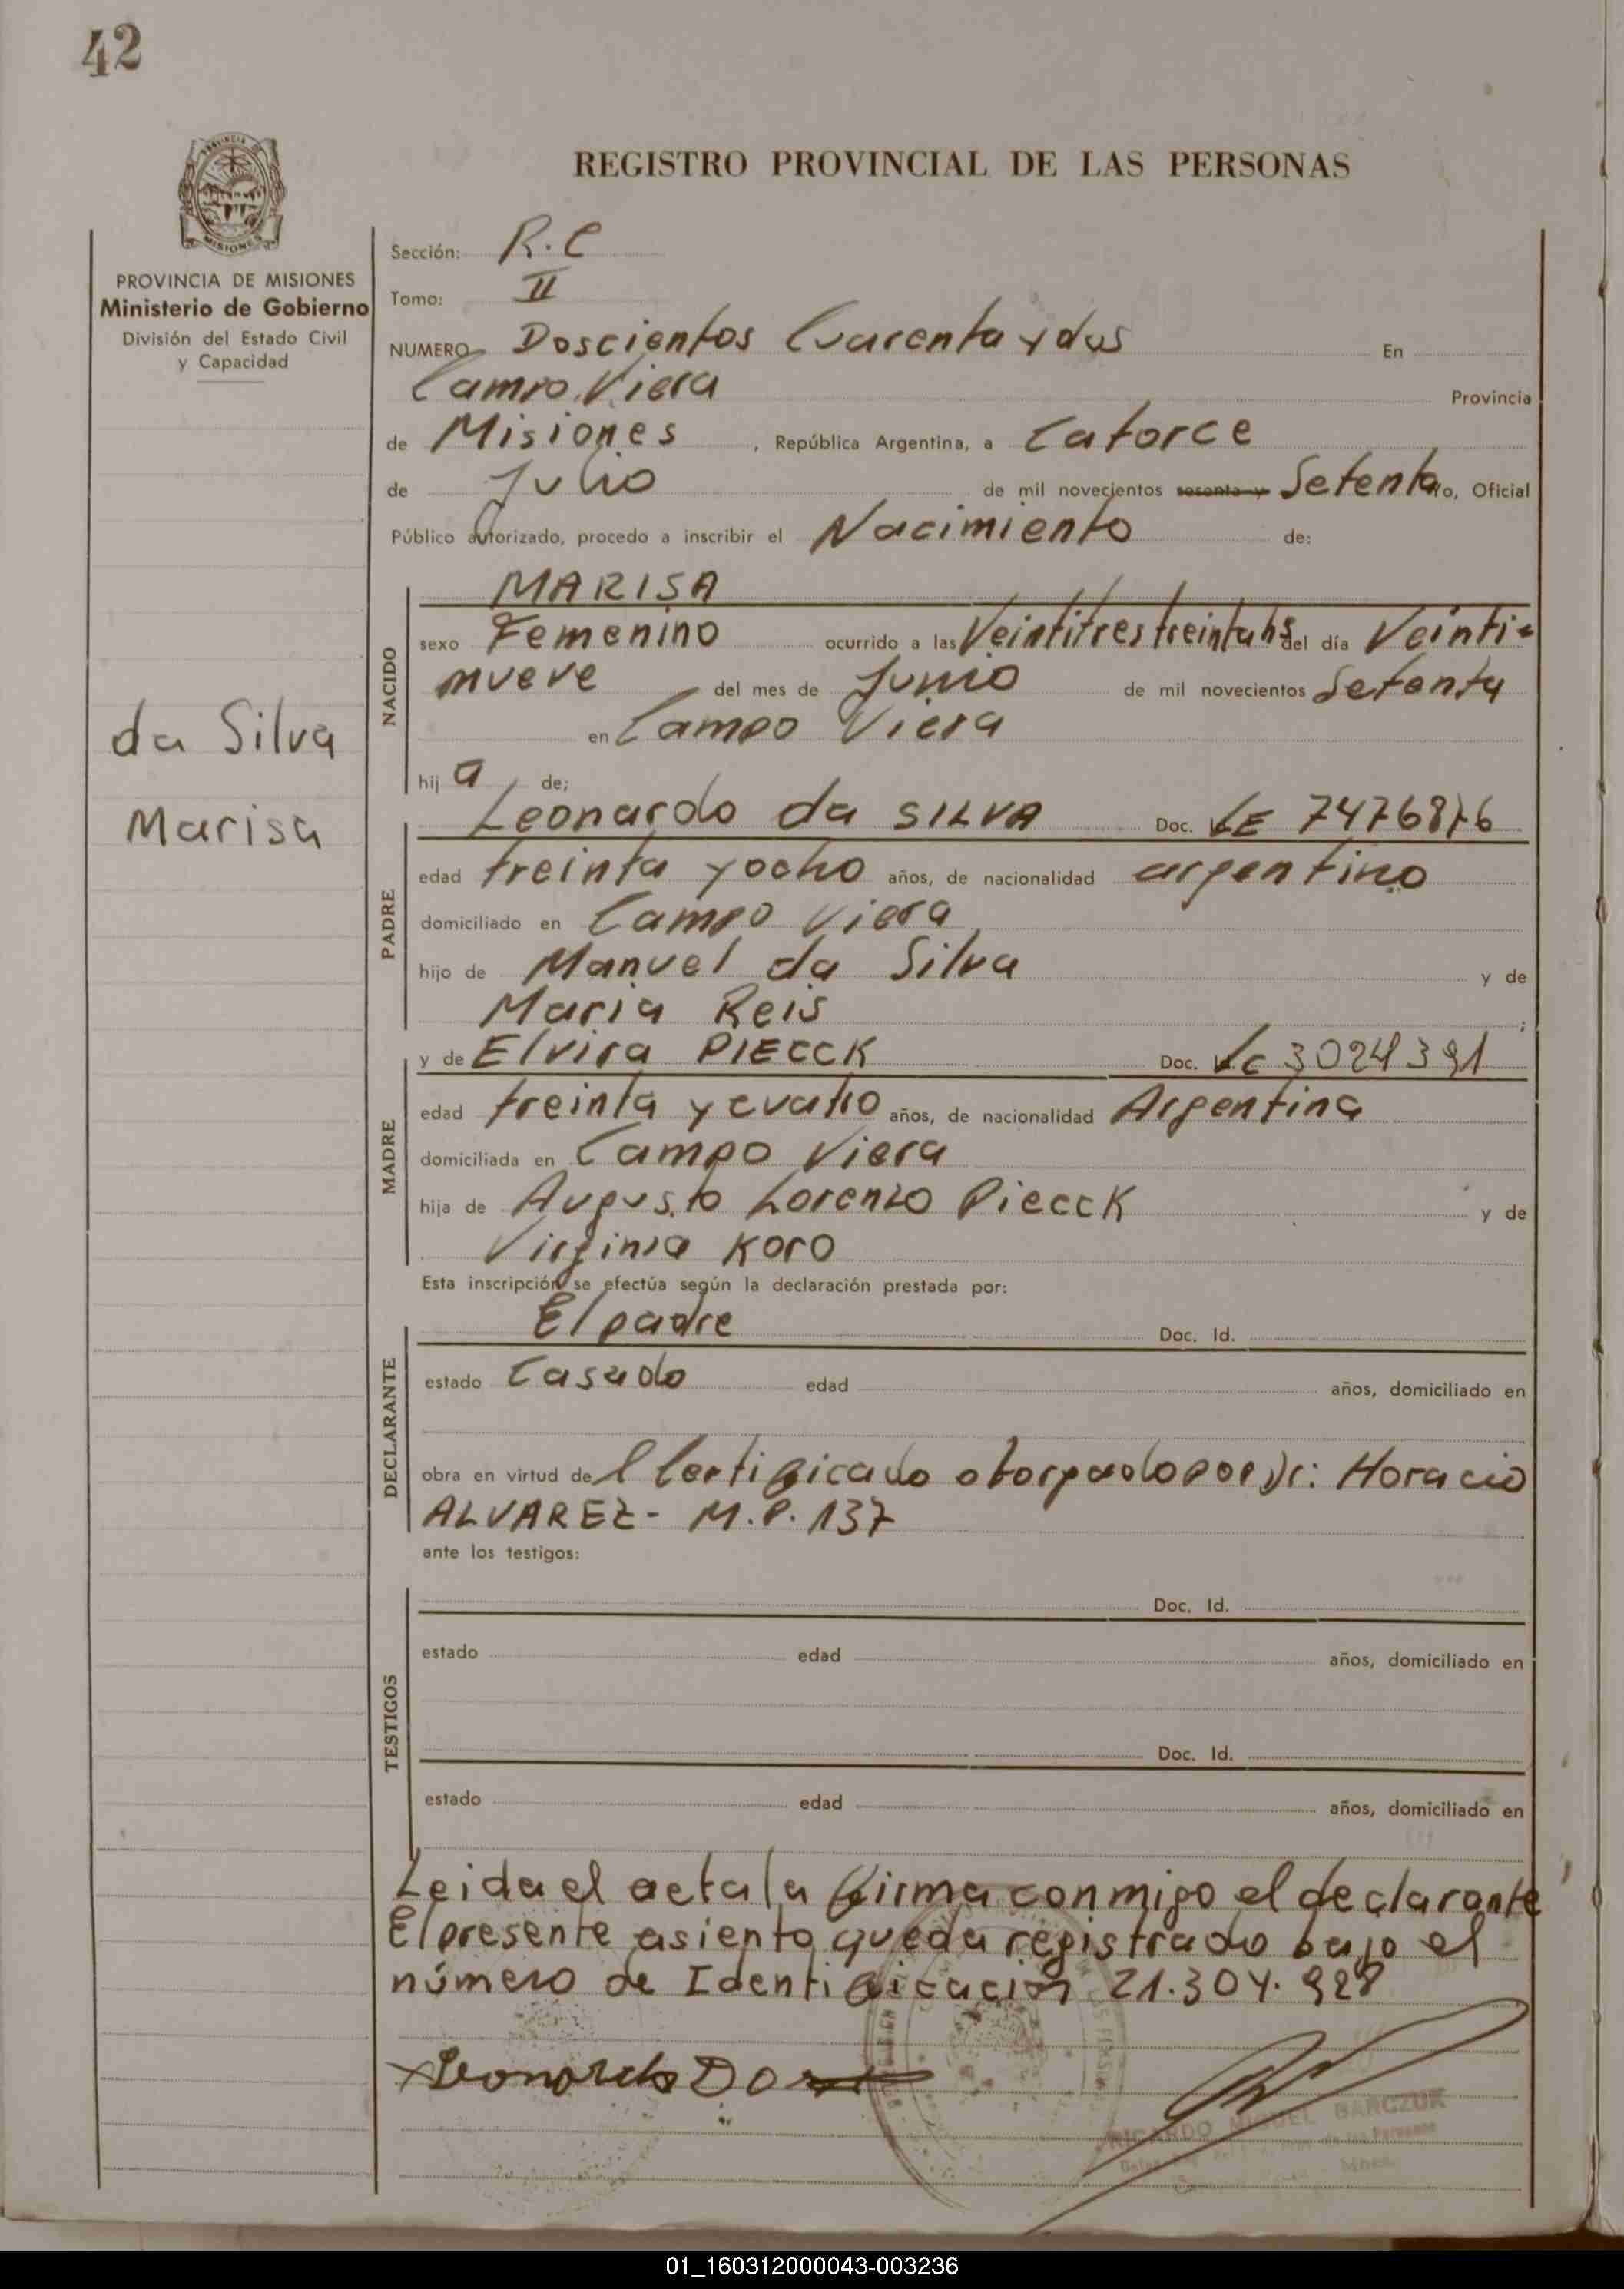 42
REGISTRO PROVINCIAL DE LAS PERSONAS
MISIONES
PROVINCIA DE MISIONES
Ministerio de Gobierno
División del Estado Civil
y Capacidad
da Silva
Marisa
Sección: R.C
Tomo: II
NUMERO Doscientos Cuarenta y dos En
Campo Viera Provincia
de Misiones, República Argentina, a Catorce
de Julio de mil novecientos sesenta y Setenta ro, Oficial
Público autorizado, procedo a inscribir el Nacimiento de:
NACIDO
MARISA
sexo Femenino ocurrido a las Veintitres treinta hs del día Veinti-
nueve del mes de Junio de mil novecientos Setenta
en Campo Viera
hij a de;
PADRE
Leonardo da SILVA Doc. LE 7476876
edad treinta y ocho años, de nacionalidad argentino
domiciliado en Campo Viera
hijo de Manuel da Silva y de
Maria Reis ;
MADRE
y de Elvira PIECCK Doc. LC 3024391
edad treinta y cuatro años, de nacionalidad Argentina
domiciliada en Campo Viera
hija de Augusto Lorenzo Piecck y de
Virginia Koro
Esta inscripción se efectúa según la declaración prestada por:
DECLARANTE
El padre Doc. Id.
estado Casado edad años, domiciliado en
obra en virtud del Certificado otorgado por Dr: Horacio
ALVAREZ - M.P. 137
ante los testigos:
TESTIGOS
Doc. Id.
estado edad años, domiciliado en
Doc. Id.
estado edad años, domiciliado en
Leida el acta la firma conmigo el declarante
El presente asiento queda registrado bajo el
número de Identificación 21.304.928
Leonardo Da
RICARDO MIGUEL BARCZUK
01_160312000043-003236